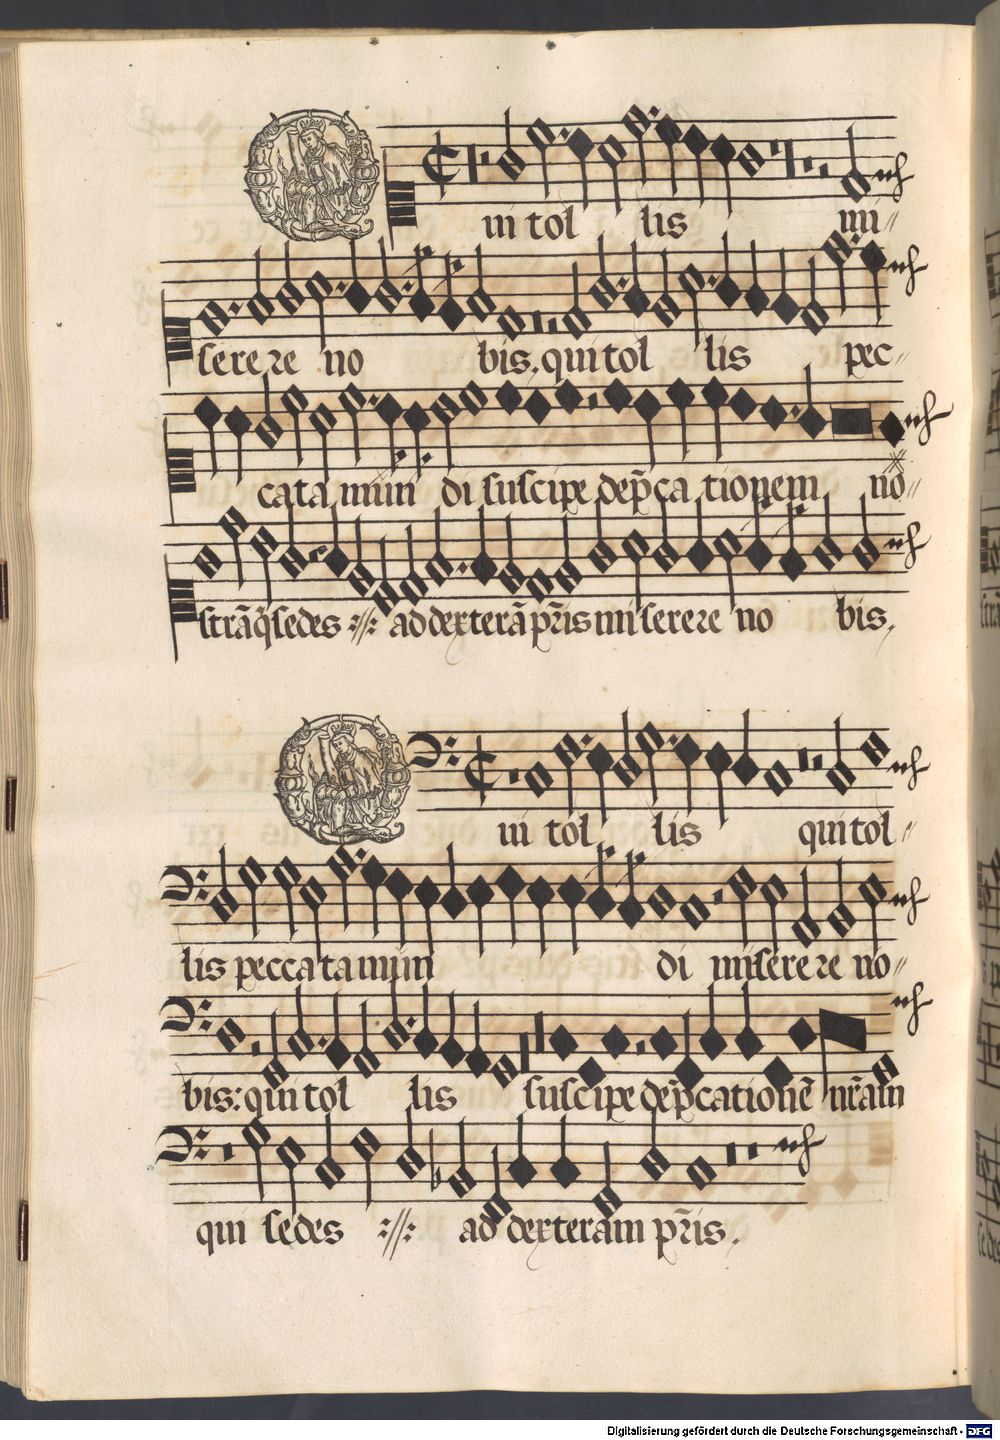 Qui tol lis mi
serere no bis, qui tol lis pec
cata mun di suscipe dep̃ca tionem no
strã q̃ sedes :||: ad dexterã pr̃is mi serere no bis,
Qui tol lis qui tol
lis peccata mun di miserere no
bis: qui tol lis suscipe dep̃cationẽ nr̃am
qui sedes :||: ad dexteram pr̃is.
Digitalisierung gefördert durch die Deutsche Forschungsgemeinschaft - DFG